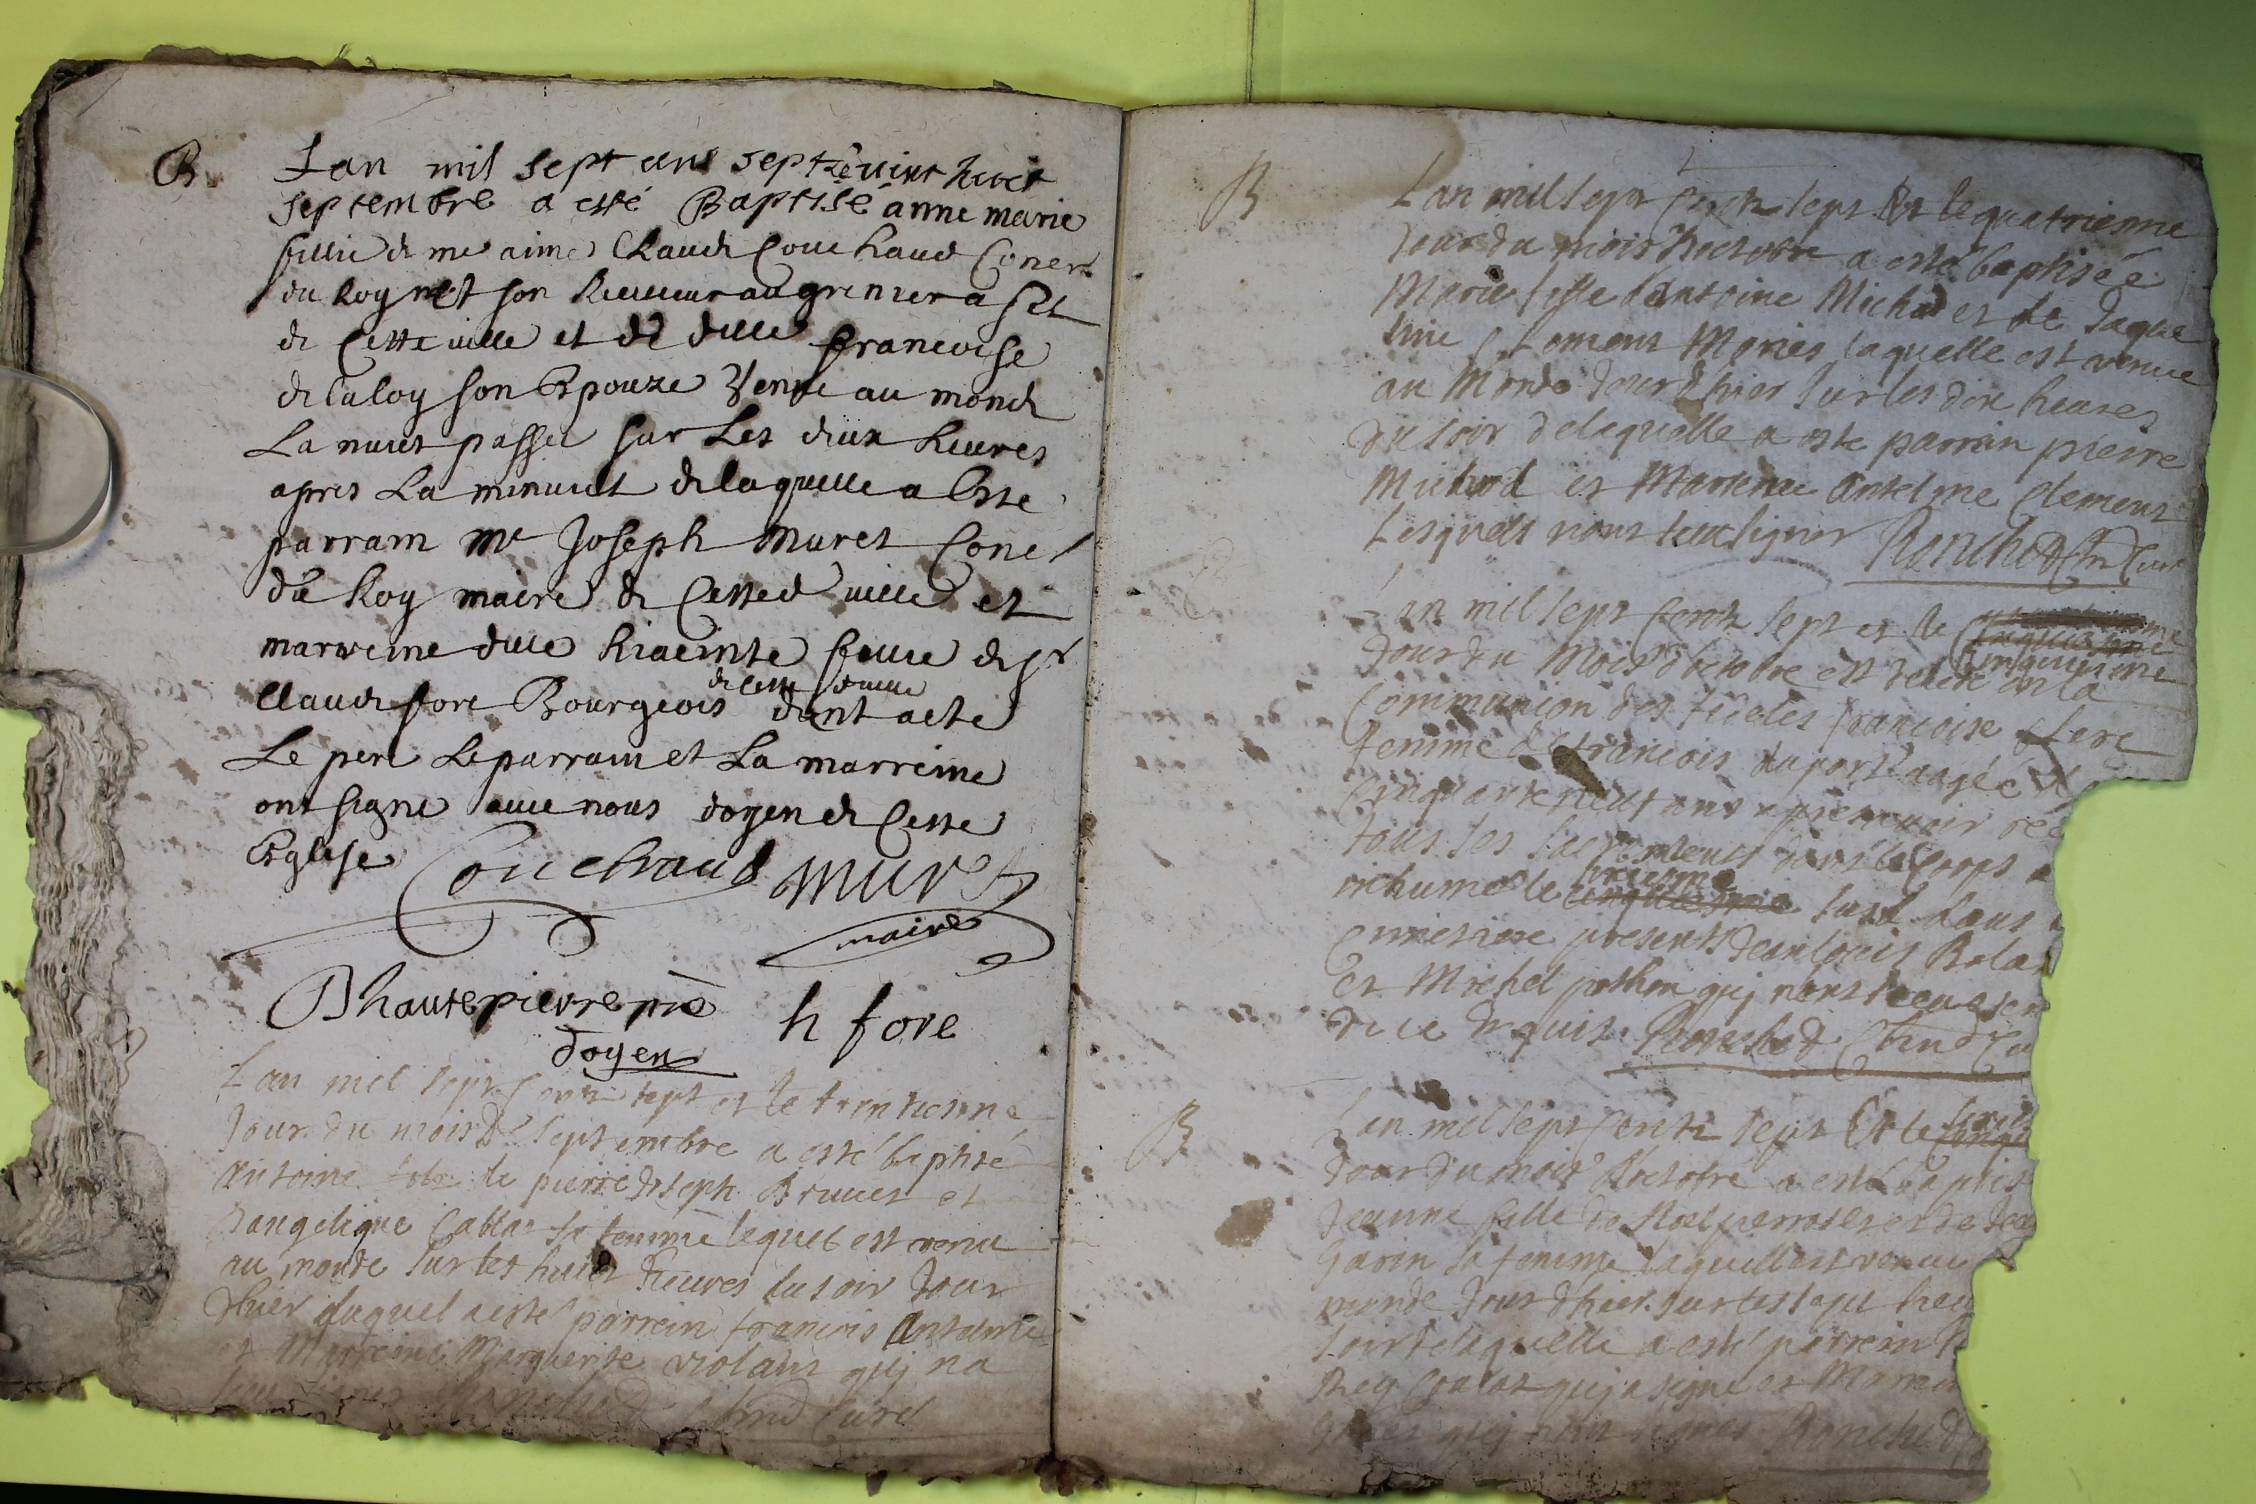 B.
Lan mil sept cens sept le vint huict
septembre a esté Baptisé anne marie
fillie de me aime Claude Couchaud Coner
du Roy et son Receveur au grenier a sel
de Cette ville et de dlle francoise
de Caloy son Epouze Venue au monde
La nuict passée sur Les deux heures
apres La minuict de laquelle a Este
parrain Me Joseph Muret Coner
du Roy maire de Cette ville et
marreine dlle hiacinte fille de sr
Claude fore Bourgeois de cette ville dont acte
Le pere Le parrain et La marreine
ont signé avec nous doyen de Cette
Eglise Couchaud Muret
maire
Dhautepierre pre h fore
doyen
Lan mil sept Cents sept et le trentiesme
Jour du mois de septembre a esté baptisé
Antoine de pierre Joseph Bruuet et
dangelique sa femme lequel est venu
au monde sur les huict heures du soir Jour
dhier duquel a esté parrein francois Antelme
et Marreine Marguerite violant quj na
curé
B
Lan mil sept Cents sept Et le quatrieme
Jour du mois d'hoctobre a esté baptiséé
Marie fille dantoine Michad et de Jaque
line Clement Mariés laquelle est venue
au Monde Jour d'hier sur les dix heures
du soir de laquelle a este parrain pierre
Michard et Marreine Antelme Clement
Lesquels n'ont sceu signer Ronched Curé
Lan mil sept Cents sept et le cinquieme
Jour du Mois d'hoctobre est decede en la
Communion des fideles francoise
femme de francois duport aagéé de
Cinquante neuf ans apres avoir
tous les Sacrements dont le Corps a
inhumé le sixieme susd. dans
Cimetiere presents Jean louis
et Michel quj n'ont sceu
de ce Enquis. Ronched
B
Lan mil sept Cents sept Et le
Jour du mois d'hoctobre a esté
Jeanne fille de Noel et de
Garin sa femme laquelle est venue
monde Jour d'hier sur les sept
soir de laquelle a esté parrein
quj a signé et
quj Ronched